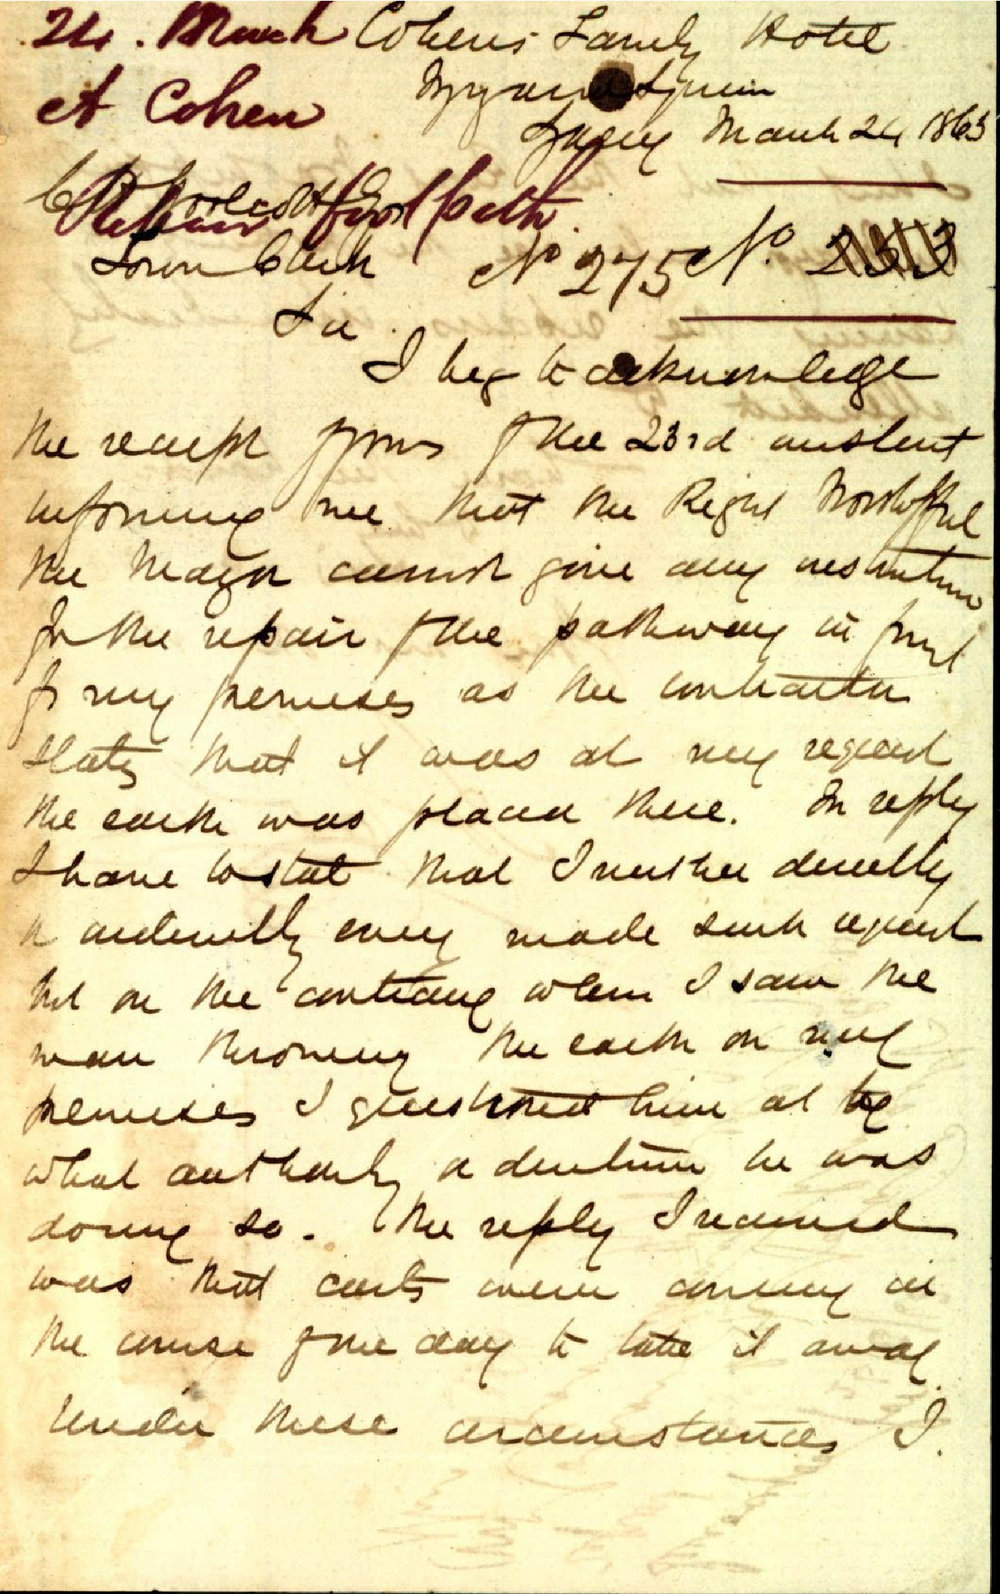 24. March
A Cohen
Cohens Family Hotel
Wynyard Square
Sydney March 24 1863
C H Woolcott Esqr
Repair footpath
Town Clerk
No 275 No. 233
Sir
I beg to acknowledge
the receipt of yours of the 23rd instant
informing me that the Right Worshipful
the Mayor cannot give any instruction
for the repair of the pathway in front
of my premises as the contractor
states that it was at my request
the earth was placed there. In reply
I have to state that I neither directly
or indirectly every made such request
but on the contrary when I saw the
man throwing the earth on my
premises I questioned him at by
what authority or direction he was
doing so. The reply I received
was that carts were coming in
the course of the day to take it away.
Under these circumstances I.